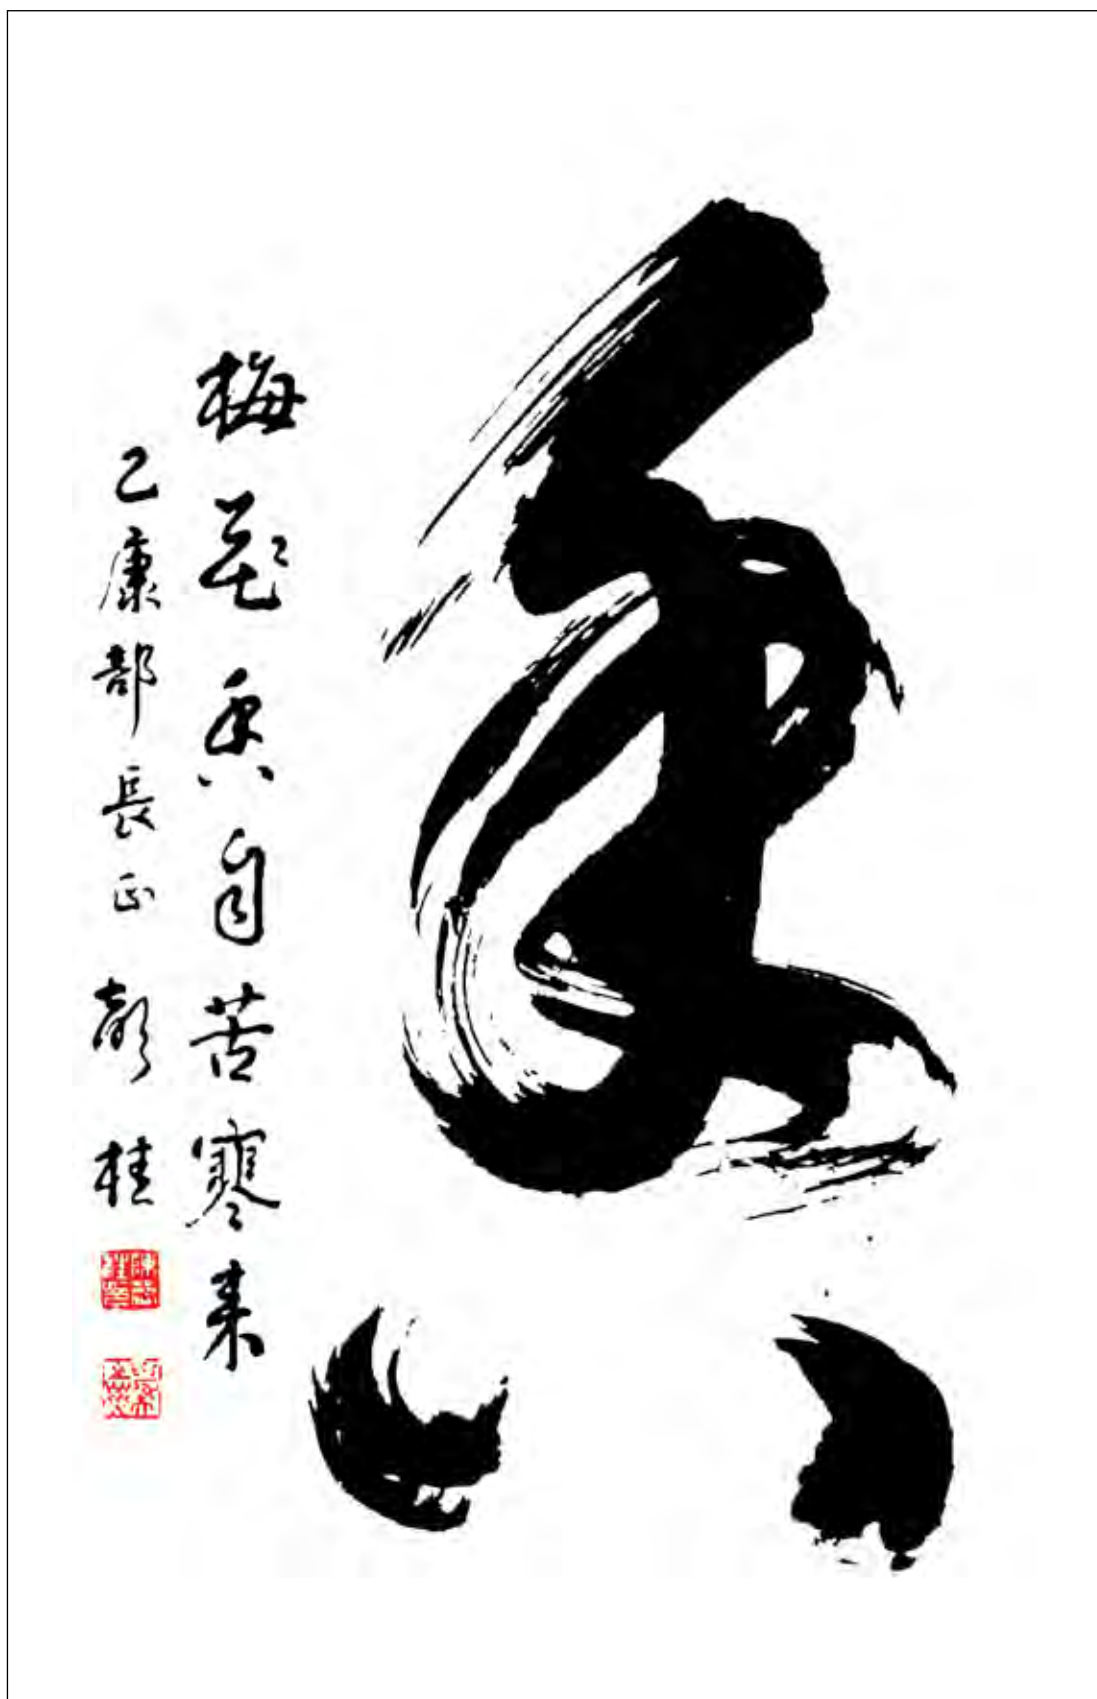 香
梅花香自苦寒来
康部長正 彭桂